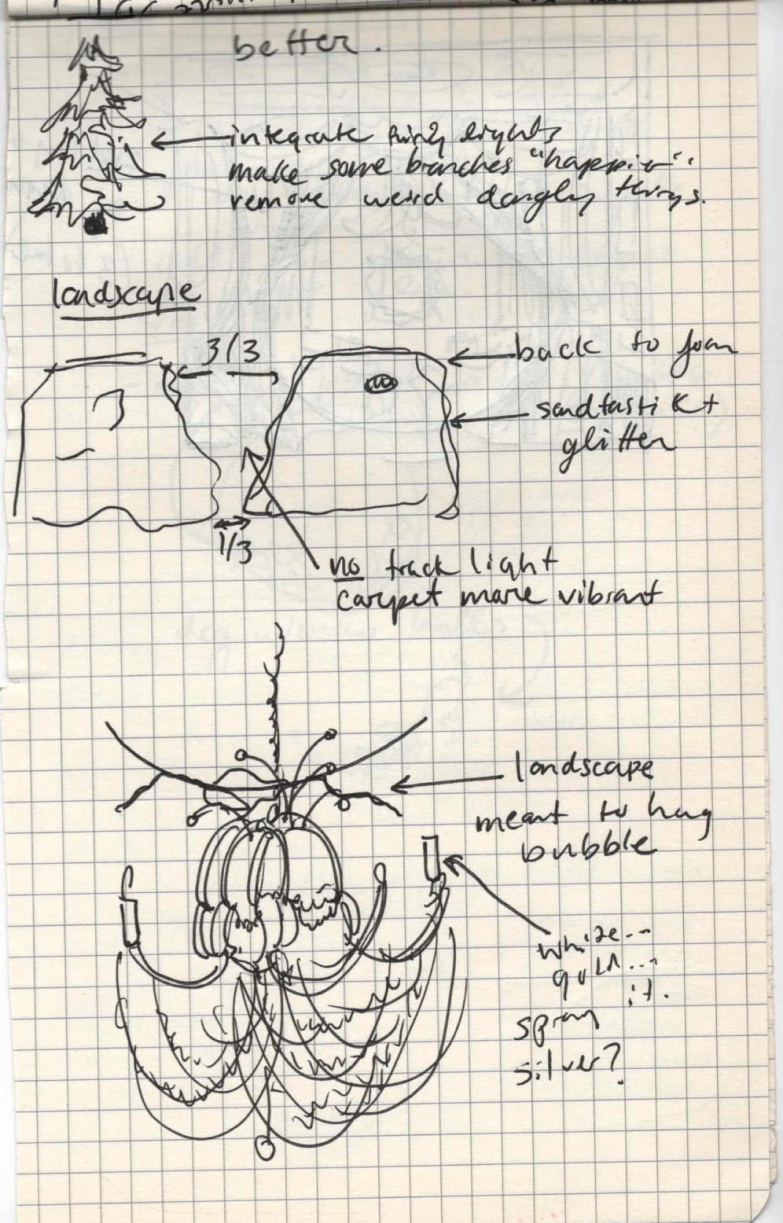 better.
integrate fairy lights
make some branches "happier".
remove weird dangly things.
landscape
3/3
back to foam
sandtastik +
glitter
1/3
no track light
carpet more vibrant
landscape
meant to hug
bubble
white...
gold...
it.
spray
silver?